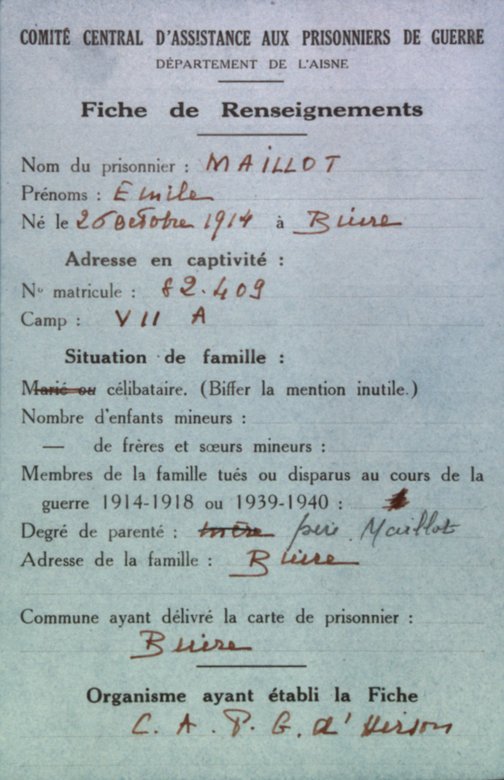 COMITÉ CENTRAL D'ASSISTANCE AUX PRISONNIERS DE GUERRE
DÉPARTEMENT DE L'AISNE
Fiche de Renseignements
Nom du prisonnier : MAILLOT
Prénoms : Emile
Né le 26 octobre 1914 à Buire
Adresse en captivité :
No matricule : 82.409
Camp : VII A
Situation de famille :
Marié ou célibataire. (Biffer la mention inutile.)
Nombre d'enfants mineurs :
— de frères et sœurs mineurs :
Membres de la famille tués ou disparus au cours de la
guerre 1914-1918 ou 1939-1940 :
Degré de parenté : père Maillot
Adresse de la famille : Buire
Commune ayant délivré la carte de prisonnier :
Buire
Organisme ayant établi la Fiche
C. A. P. G. d'Hirson